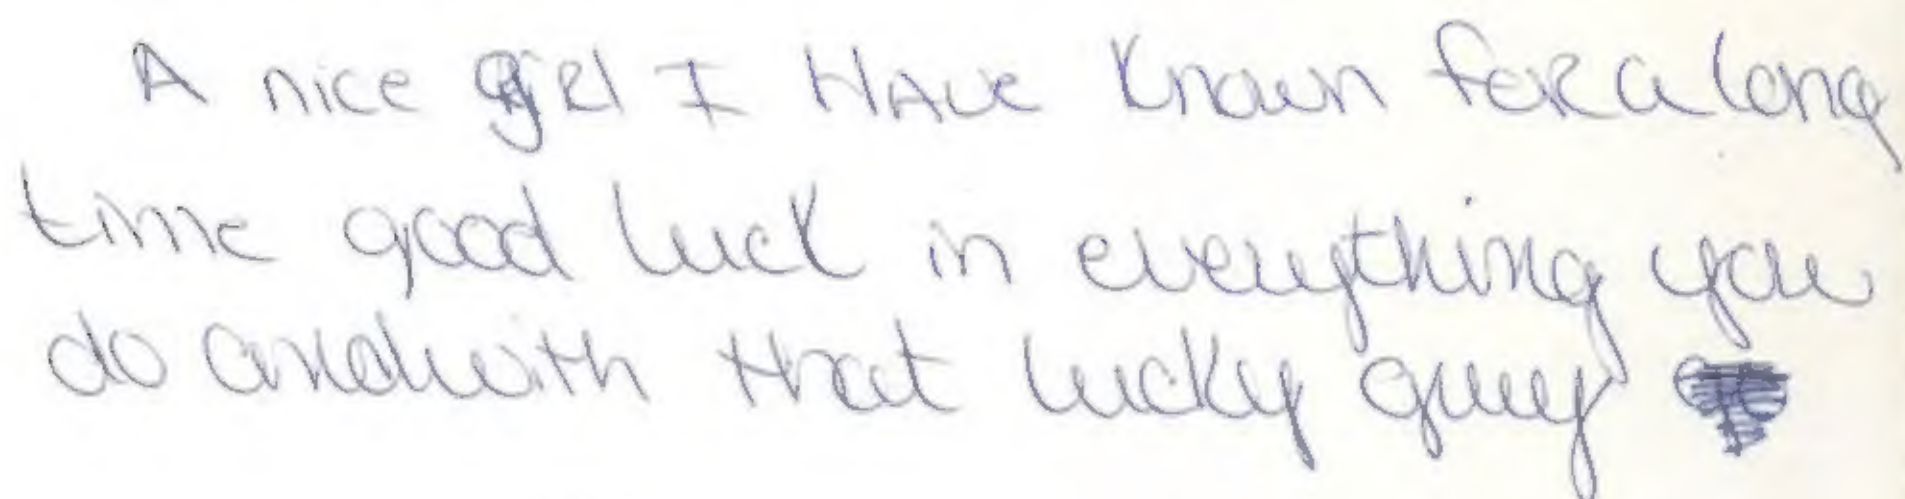 A nice girl I HAVE known for a long
time good luck in everything you
do and with that lucky guy